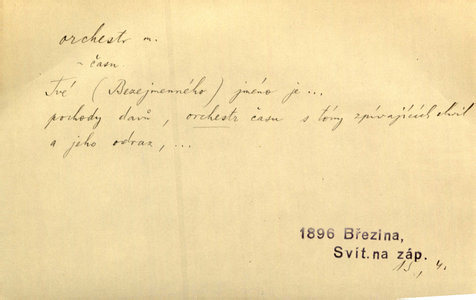 orchestr m.
~ času.
Tvé (Bezejmenného) jméno je...
pochody davů, orchestr času s tóny zpívajících chvil
a jeho odraz, ...
1896 Březina,
Svít. na záp.
13, 4.